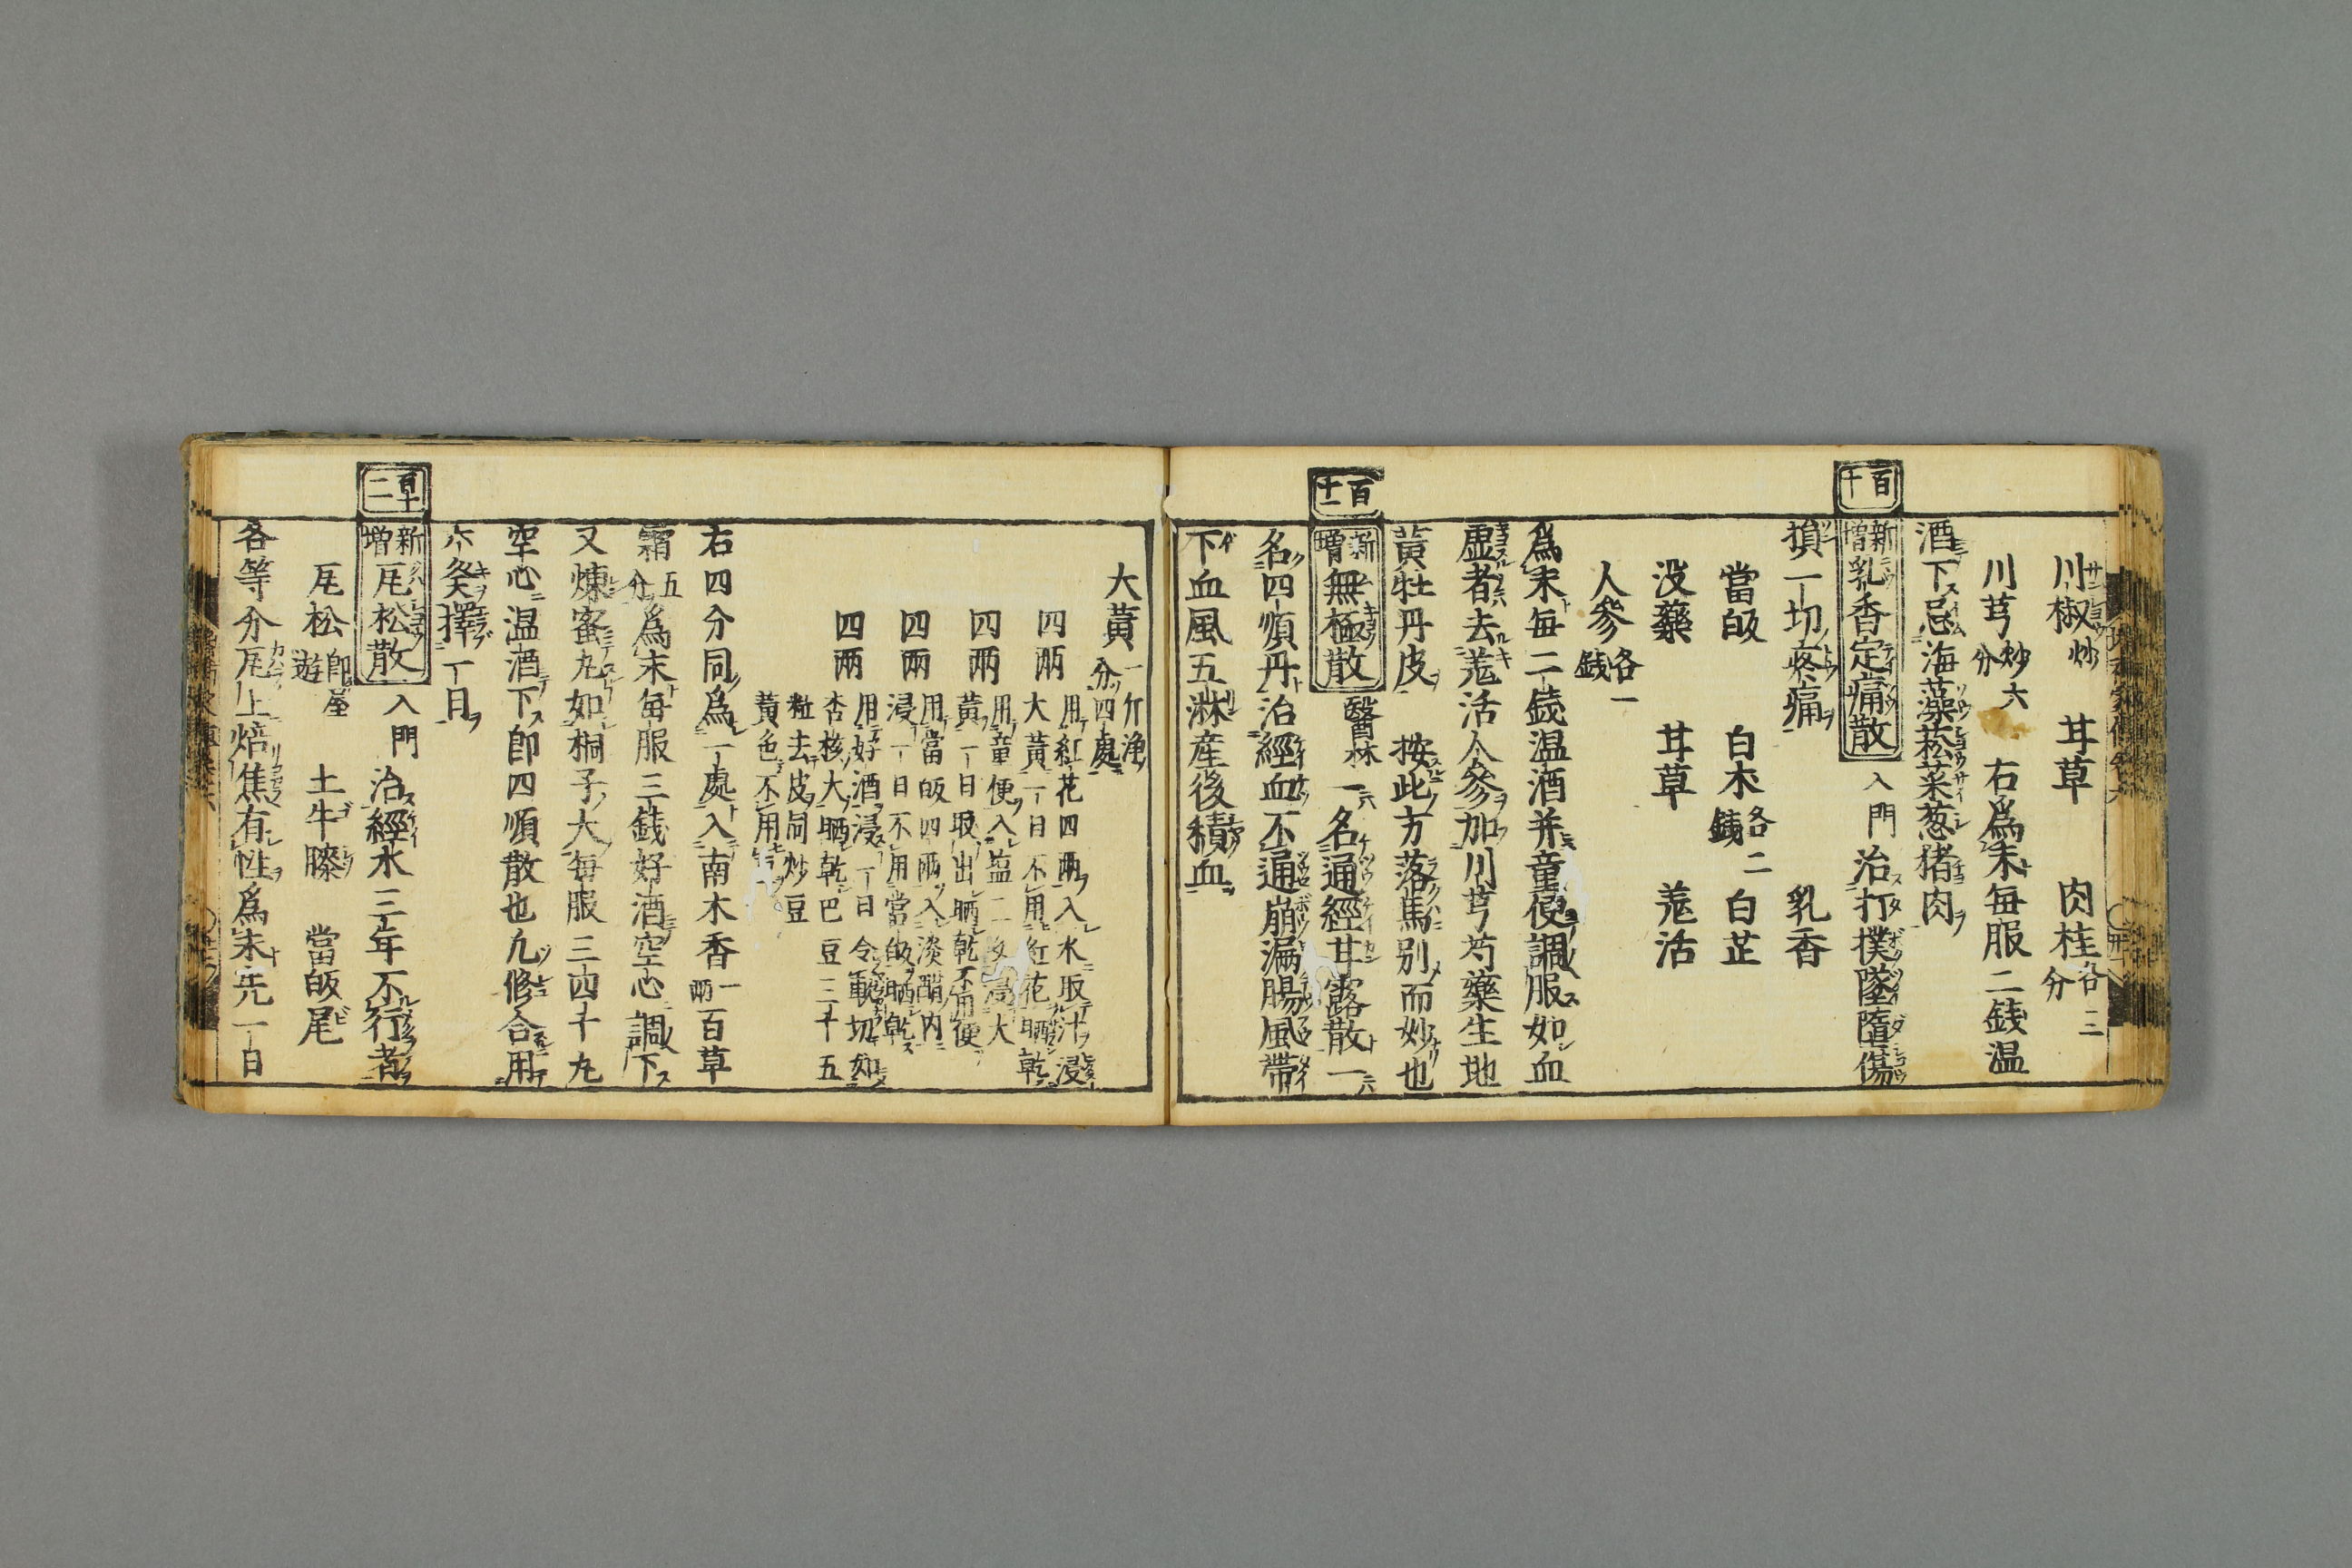 川椒炒 耳草 肉桂各三分
川芎炒六分 右爲末毎服二銭温
酒下忌海藻菘菜葱猪肉
百十
新増乳香定痛散 入門 治打撲墜墮傷
損一切疼痛 乳香
當皈 白朮各二銭 白芷
没藥 甘草 羗活
人參各一銭
爲末毎二銭温酒并童便調服如血
虚者去羗活人參加川芎芍藥生地
黄牡丹皮 按此方落馬別而妙也
百十一
新増無極散 醫林 一名通經甘露散一
名四順丹治經血不通崩漏腸風帶
下血風五淋産後積血
大黄一斤浄分四處
四兩 用紅花四兩入水取汁浸大黄一日不用紅花晒乾
四兩 用童便入塩二浸大黄一日取出晒乾不用便
四兩 用當皈四兩入淡醋内浸一日不用當皈晒乾
四兩 用好酒浸一日令軟切如杏核大晒乾巴豆三十五
粒去皮同炒豆黄色不用
右四分同爲一處入南木香一兩百草
霜五分爲末毎服三銭好酒空心調下
又煉蜜丸如桐子大毎服三四十丸
空心温酒下即四順散也凡修合用
六癸擇一日
百十二
新増瓦松散 入門 治經水三年不行者
瓦松即屋遊 土牛膝 當皈尾
各等分瓦上焙焦有性爲末先一日